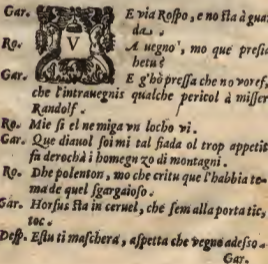 Gar. E via Rospo, e no sta à guar
da.
Ro. V A uegno', mo que presia
hetu?
Gar. E g'hò pressa che no voref,
che l'intrauegnis qualche pericol à misser
Randolf.
Ro. Mie si el ne miga vn locho vì.
Gar. Que diauol soi mi tal fiada ol trop appetit
fa derochà i homegn zo di montagni.
Ro. Dhe polenton, mo che critu que l'habbia te-
ma de quel sgargaioso.
Gar. Horsus sta in ceruel, che sem alla porta tic,
toc.
Desp. Estu ti maschera, aspetta che vegno adesso.
Gar.